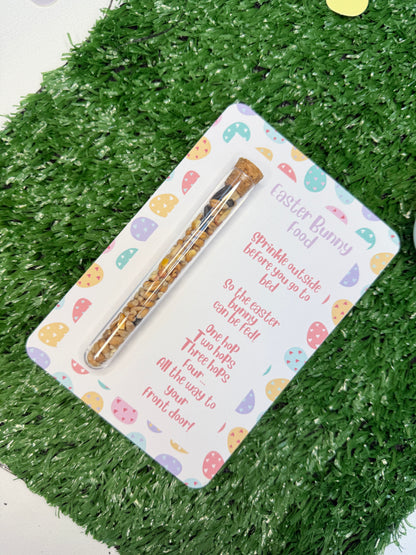 Easter Bunny
Food
Sprinkle outside
before you go to
bed
So the easter
bunny
can be fed!
One hop
Two hops
Three hops
four...
All the way to
your
front door!